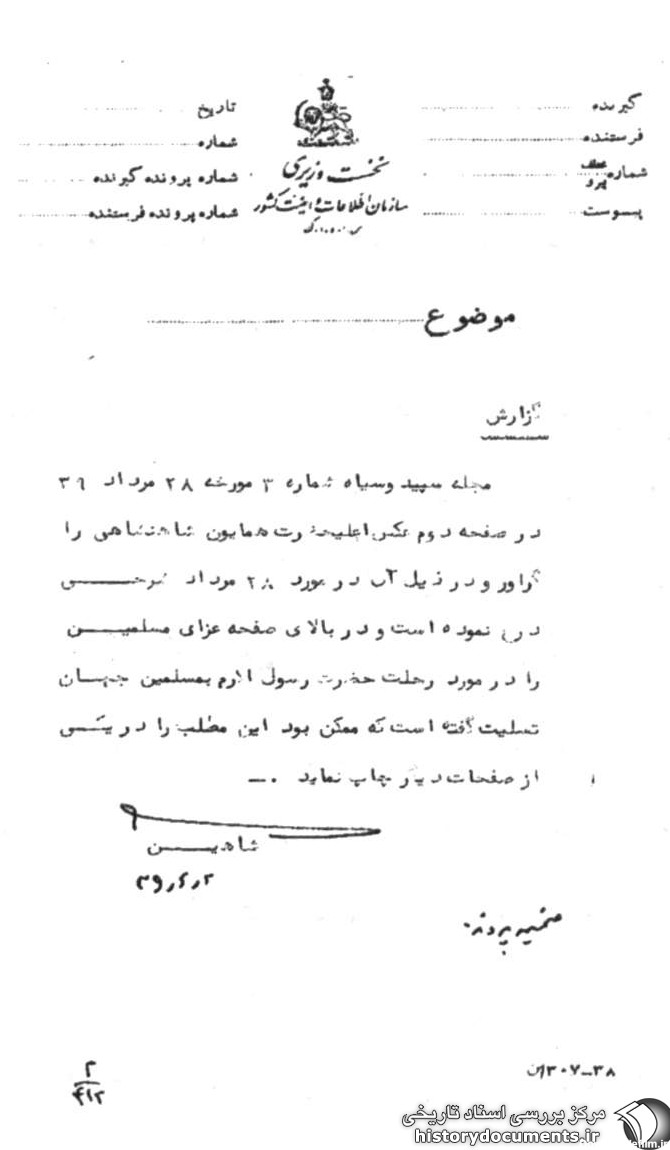 گیرنده
فرستنده
شماره عطف پیرو
پیوست
نخست وزیری
سازمان اطلاعات و امنیت کشور
س.ا.و.ا.ک
تاریخ
شماره
شماره پرونده گیرنده
شماره پرونده فرستنده
موضوع
گزارش
مجله سپید و سیاه شماره ۳ مورخه ۲۸ مرداد ۳۹
در صفحه دوم عکس اعلیحضرت همایون شاهنشاهی را
گراور و در ذیل آن در مورد ۲۸ مرداد شرحی
درج نموده است و در بالای صفحه عزای مسلمین
را در مورد رحلت حضرت رسول اکرم بمسلمین جهان
تسلیت گفته است که ممکن بود این مطلب را در یکی
از صفحات دیگر چاپ نماید .ـ
شاهین
۳۹٫۶٫۲
ضمیمه پرونده
۲
۴۱۲
۳۸-۳۰۷
مرکز بررسی اسناد تاریخی
historydocuments.ir